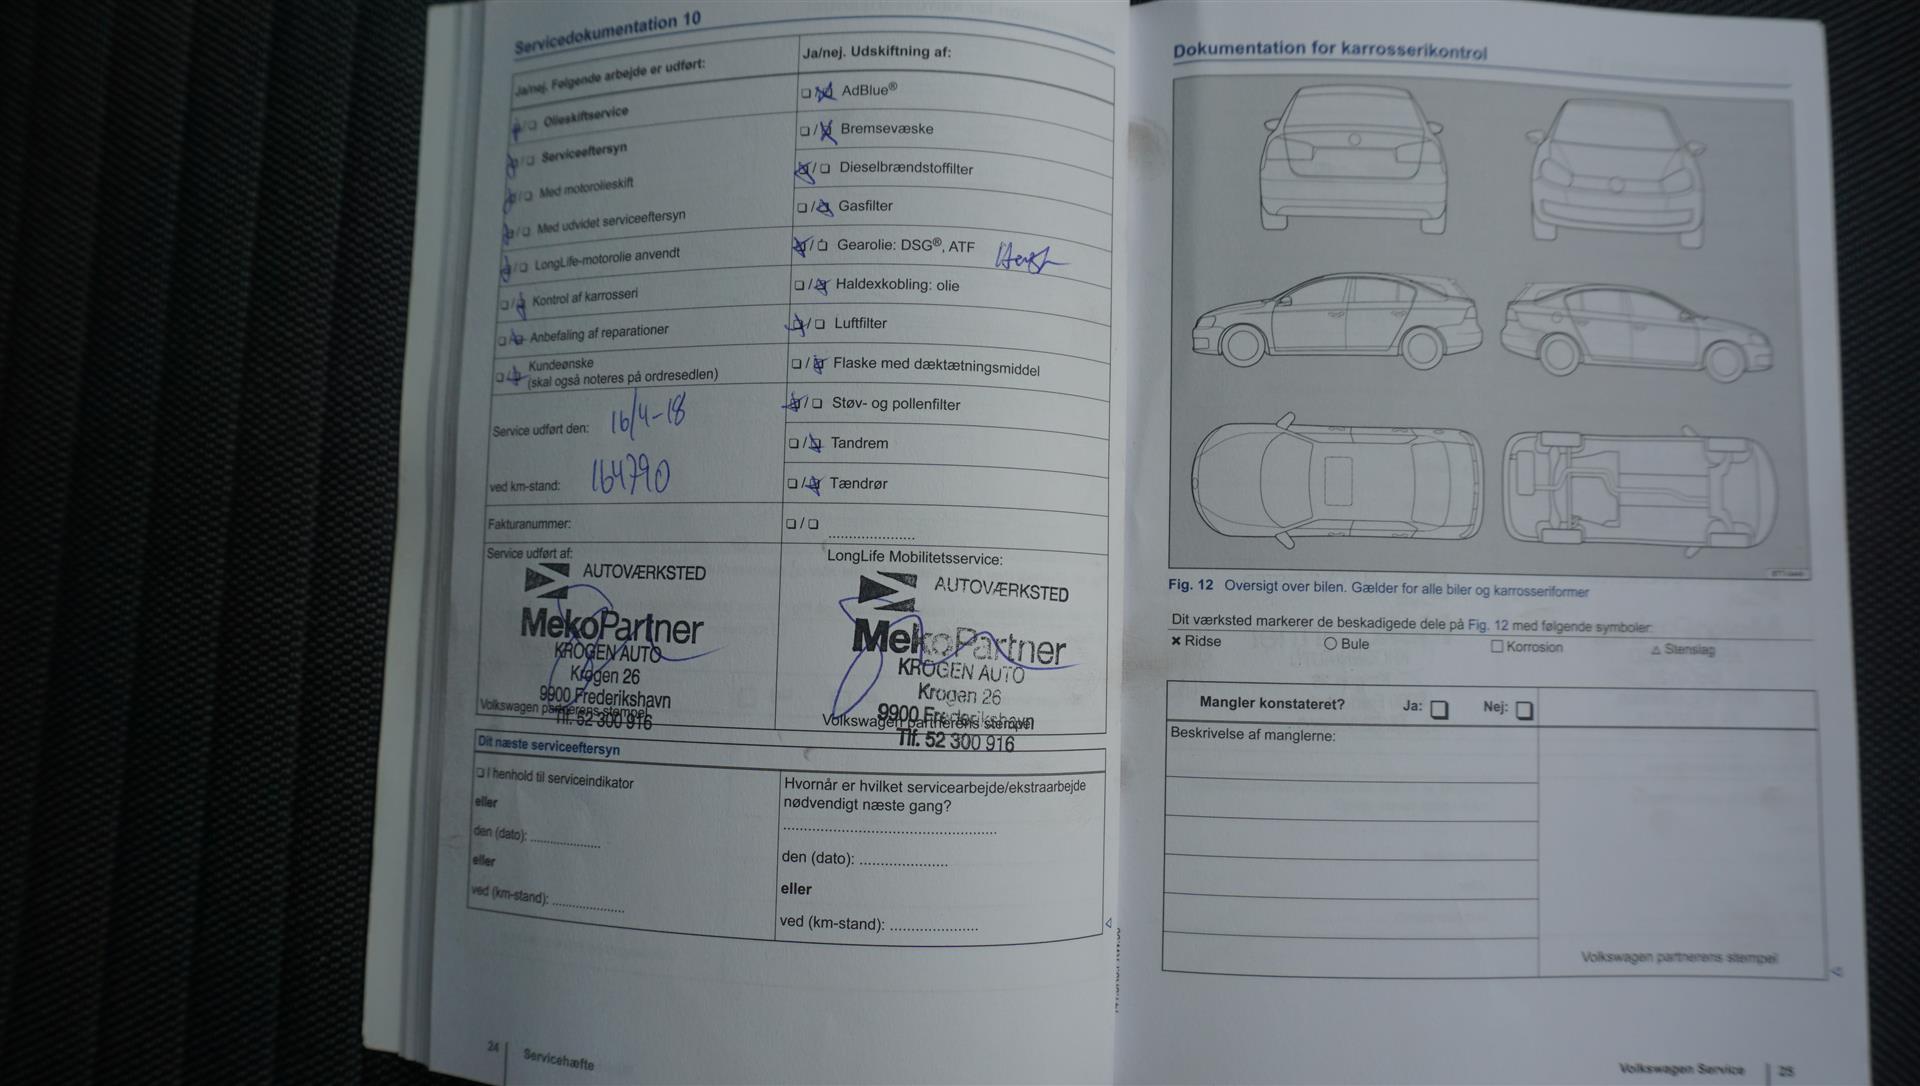 Servicedokumentation 10
Ja/nej. Følgende arbejde er udført:
☐/☐ Olieskiftservice
☐/☐ Serviceeftersyn
☐/☐ Med motorolieskift
☐/☐ Med udvidet serviceeftersyn
☐/☐ LongLife-motorolie anvendt
☐/☐ Kontrol af karrosseri
☐/☐ Anbefaling af reparationer
☐/☐ Kundeønske
(skal også noteres på ordresedlen)
Service udført den: 16/4-18
ved km-stand: 164790
Fakturanummer:
Service udført af:
AUTOVÆRKSTED
MekoPartner
KROGEN AUTO
Krogen 26
9900 Frederikshavn
Volkswagen partnerens stempel
Tlf. 52 300 916
Ja/nej. Udskiftning af:
☐/☐ AdBlue®
☐/☐ Bremsevæske
☐/☐ Dieselbrændstoffilter
☐/☐ Gasfilter
☐/☐ Gearolie: DSG®, ATF
☐/☐ Haldexkobling: olie
☐/☐ Luftfilter
☐/☐ Flaske med dæktætningsmiddel
☐/☐ Støv- og pollenfilter
☐/☐ Tandrem
☐/☐ Tændrør
☐/☐ ......................
LongLife Mobilitetsservice:
AUTOVÆRKSTED
MekoPartner
KROGEN AUTO
Krogen 26
9900 Frederikshavn
Volkswagen partnerens stempel
Tlf. 52 300 916
Dit næste serviceeftersyn
☐ I henhold til serviceindikator
eller
den (dato): ..................
eller
ved (km-stand): ..................
Hvornår er hvilket servicearbejde/ekstraarbejde
nødvendigt næste gang?
......................................................
den (dato): ......................
eller
ved (km-stand): ......................
24 Servicehæfte
Dokumentation for karrosserikontrol
Fig. 12 Oversigt over bilen. Gælder for alle biler og karrosseriformer
Dit værksted markerer de beskadigede dele på Fig. 12 med følgende symboler:
✖ Ridse ○ Bule □ Korrosion △ Stenslag
Mangler konstateret? Ja: ☐ Nej: ☐
Beskrivelse af manglerne:
Volkswagen partnerens stempel
Volkswagen Service 25